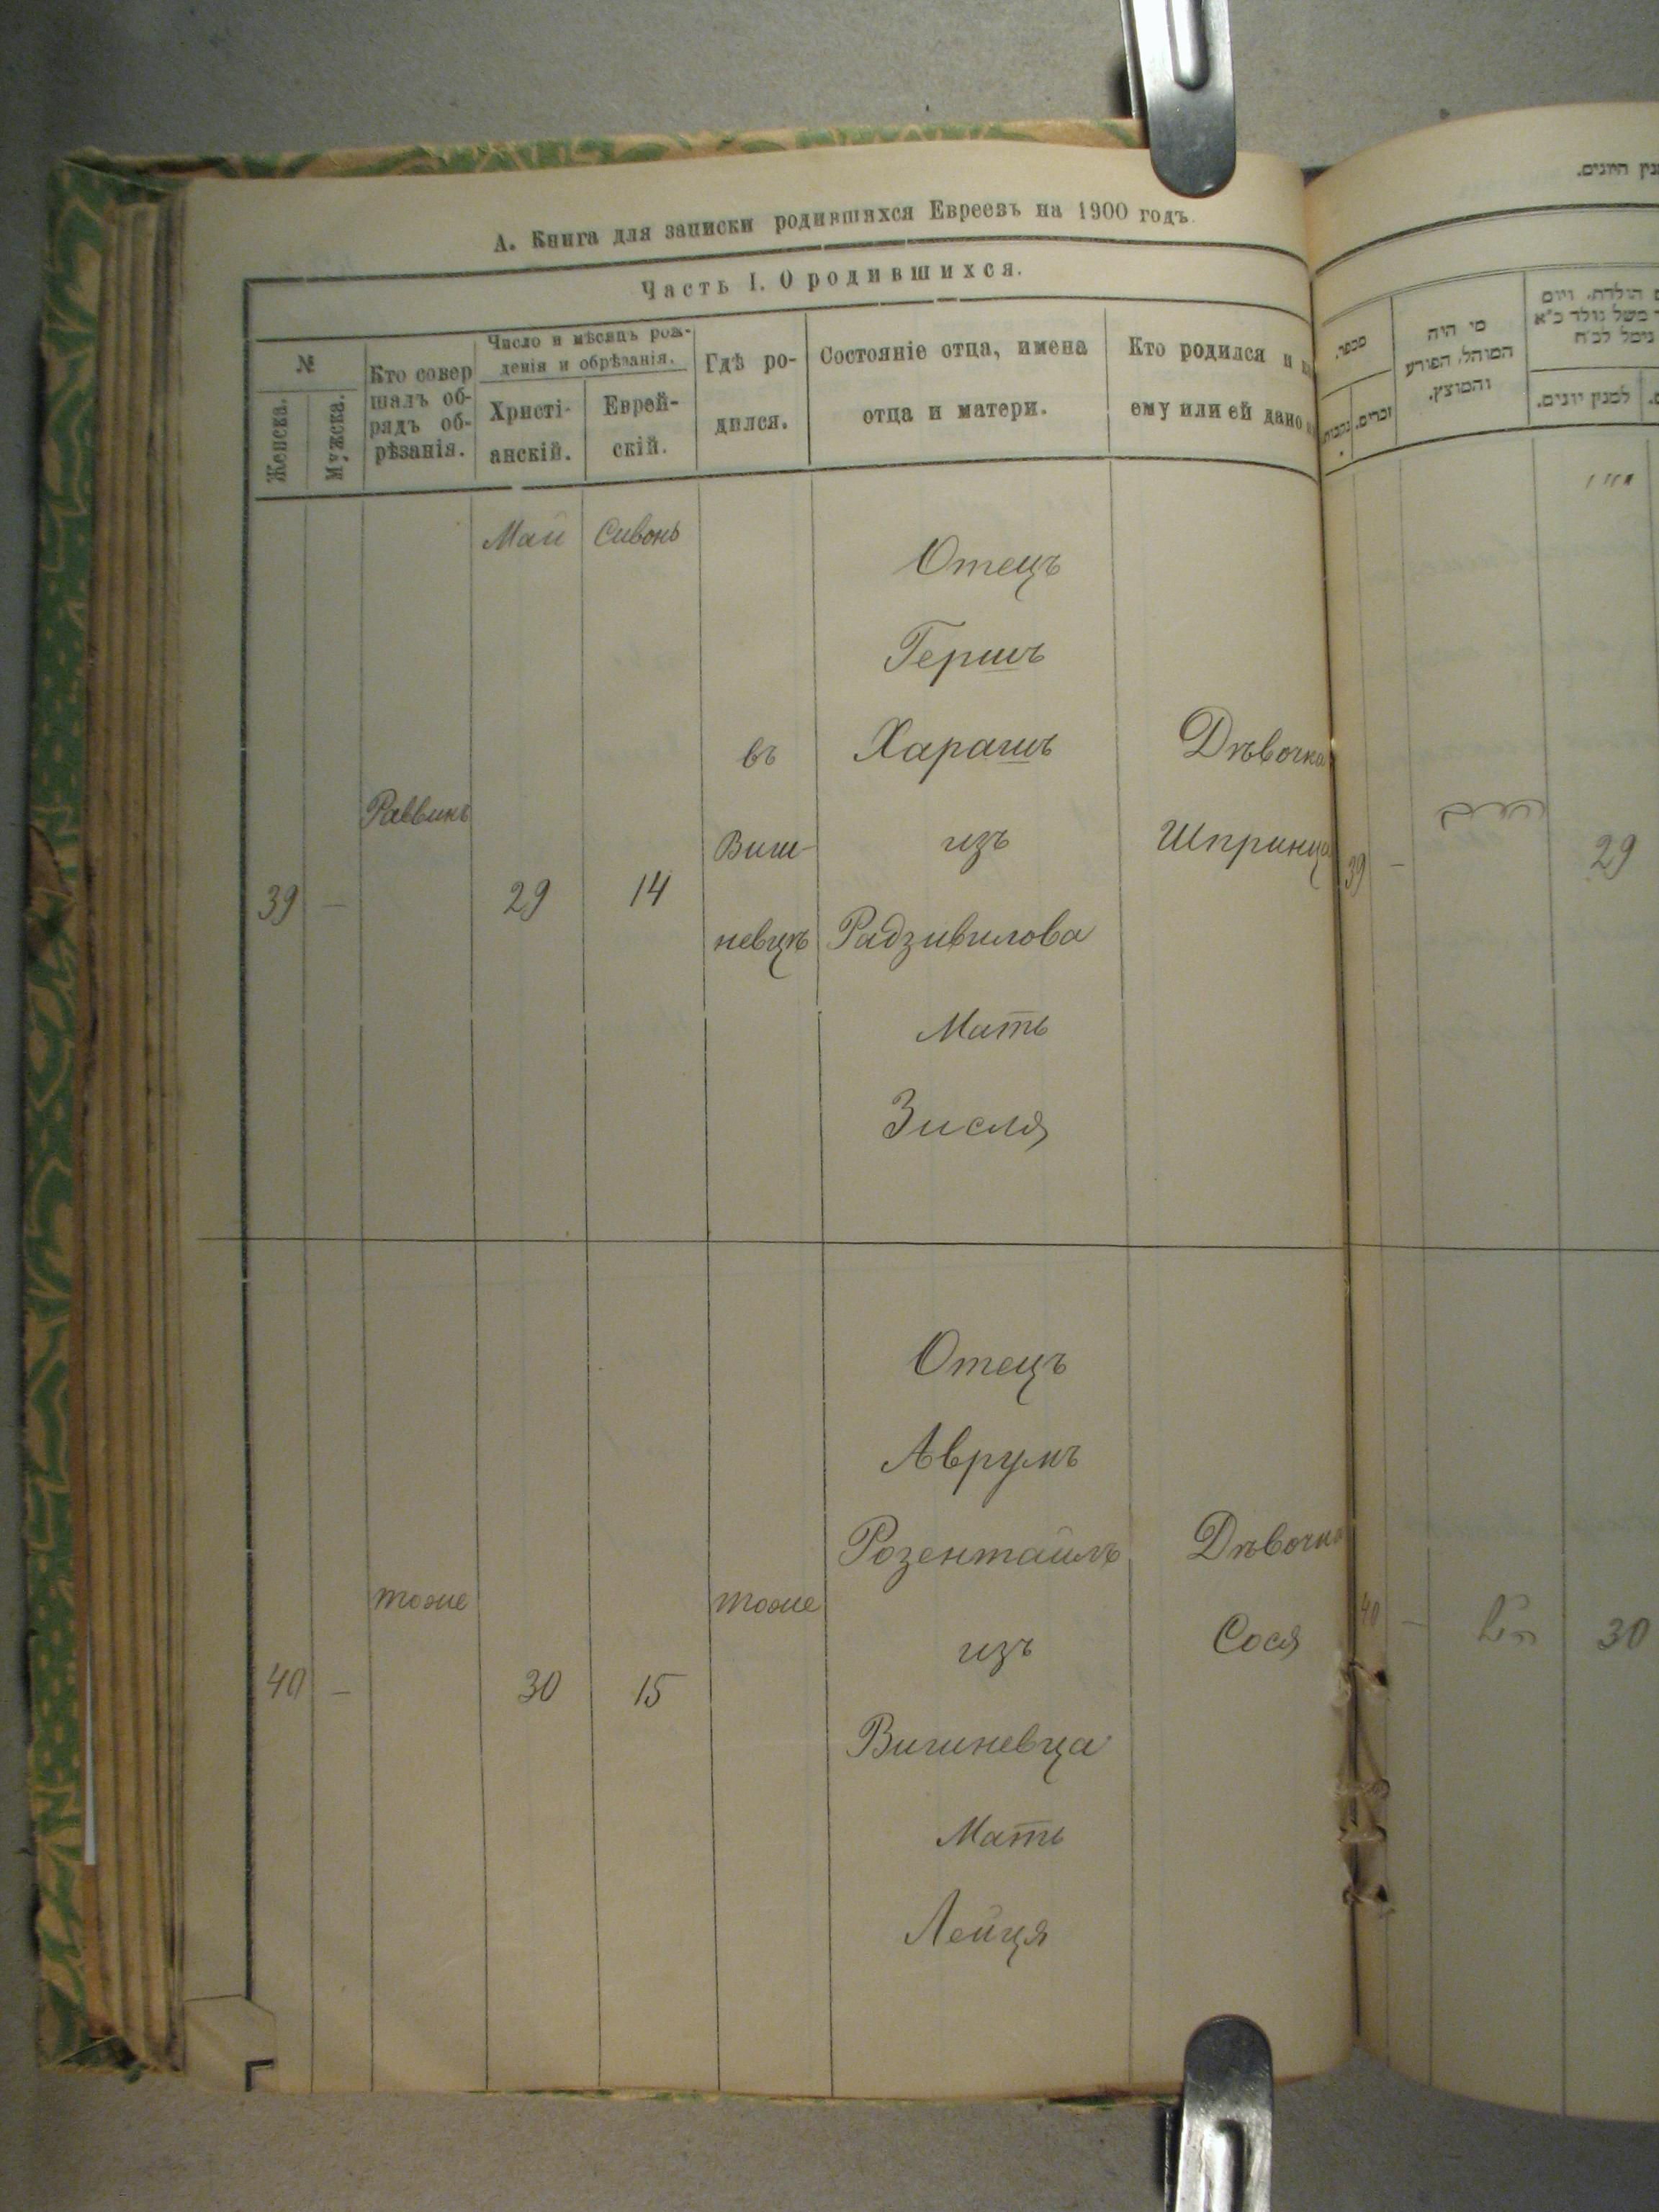 А. Книга для записки родившихся Евреевъ на 1900 годъ.
Часть I. О родившихся.
№
Женска.
Мужска.
Кто совер
шалъ об-
рядъ об-
рѣзанія.
Число и мѣсяцъ рож-
денія и обрѣзанія.
Христі-
анскій.
Еврей-
скій.
Гдѣ ро-
дился.
Состояніе отца, имена
отца и матери.
Кто родился и
ему или ей дано
Май
Сивонь
39
—
Раввинъ
29
14
въ
Виш-
невцѣ
Отецъ
Гершъ
Харашъ
изъ
Радзивилова
Мать
Зисля
Дѣвочка
Шпринца
40
—
тоже
30
15
тоже
Отецъ
Аврумъ
Розентайлъ
изъ
Вишневца
Мать
Лейця
Дѣвочка
Сося
מספר.
נקבות.
זכרים.
מי היה
המוהל, הפורע
והמוצץ.
למנין יונים.
39
—
29
40
—
30